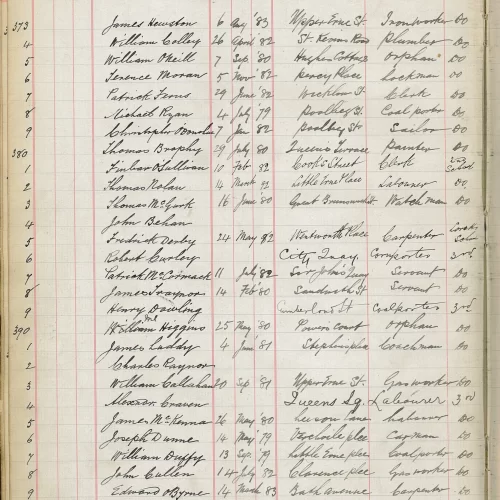 373 James Hewston 6 Aug '83 Upper Erne St. Ironworker Do
4 William Colley 26 April 82 St. Kevins Road Plumber Do
5 William O'Neill 7 Sep '80 Hughes Cottages Orphan Do
6 Terence Moran 5 Nov '82 Percy Place Lockman Do
7 Patrick 29 June '82 Wicklow St Clerk Do
8 Michael Ryan 4 July '79 Poolbeg St. Coal porter Do
9 Christopher 7 Jan 82 Poolbeg St Sailor Do
380 Thomas Brophy 29 July '80 Queens Terrace Painter Do
1 Finbar O'Sullivan 10 Feb 82 Cook's Street Clerk
2 Thomas Nolan 14 March Little Erne Place Labourer Do
3 Thomas McGurk 16 June '80 Great Brunswick St Watchman Do
4 John Behan
5 Fredrick Derby 24 May 82 Wentworth Place Carpenter
6 Robert Curley City Quay. Cornporter 3rd
7 Patrick McCormack 11 July 82 Sir John's Quay Servant Do
8 James Traynor 14 Feb '80 Sandwith St Servant Do
9 Henry Dowling Cumberland St Coalporter 3rd
390 William Higgins 25 May '80 Powerscourt Orphan Do
1 James Liddy 4 Jan '81 Stephens place Coachman Do
2 Charles Raynor
3 William Callahan 20 Sep '81 Upper Erne St. Gasworker Do
4 Alexdr. Craven Queens Sq. Labourer 3rd
5 James McKenna 26 May '80 Do
6 Joseph Dunne 14 May '79 Verschoyle plce Carman Do
7 William Duffy 13 Sep '79 Little Erne plce Coalporter Do
8 John Cullen 14 July 82 Clarence plce Gasworker Do
9 Edward O'Byrne 14 March 83 Bath avenue Carpenter Do